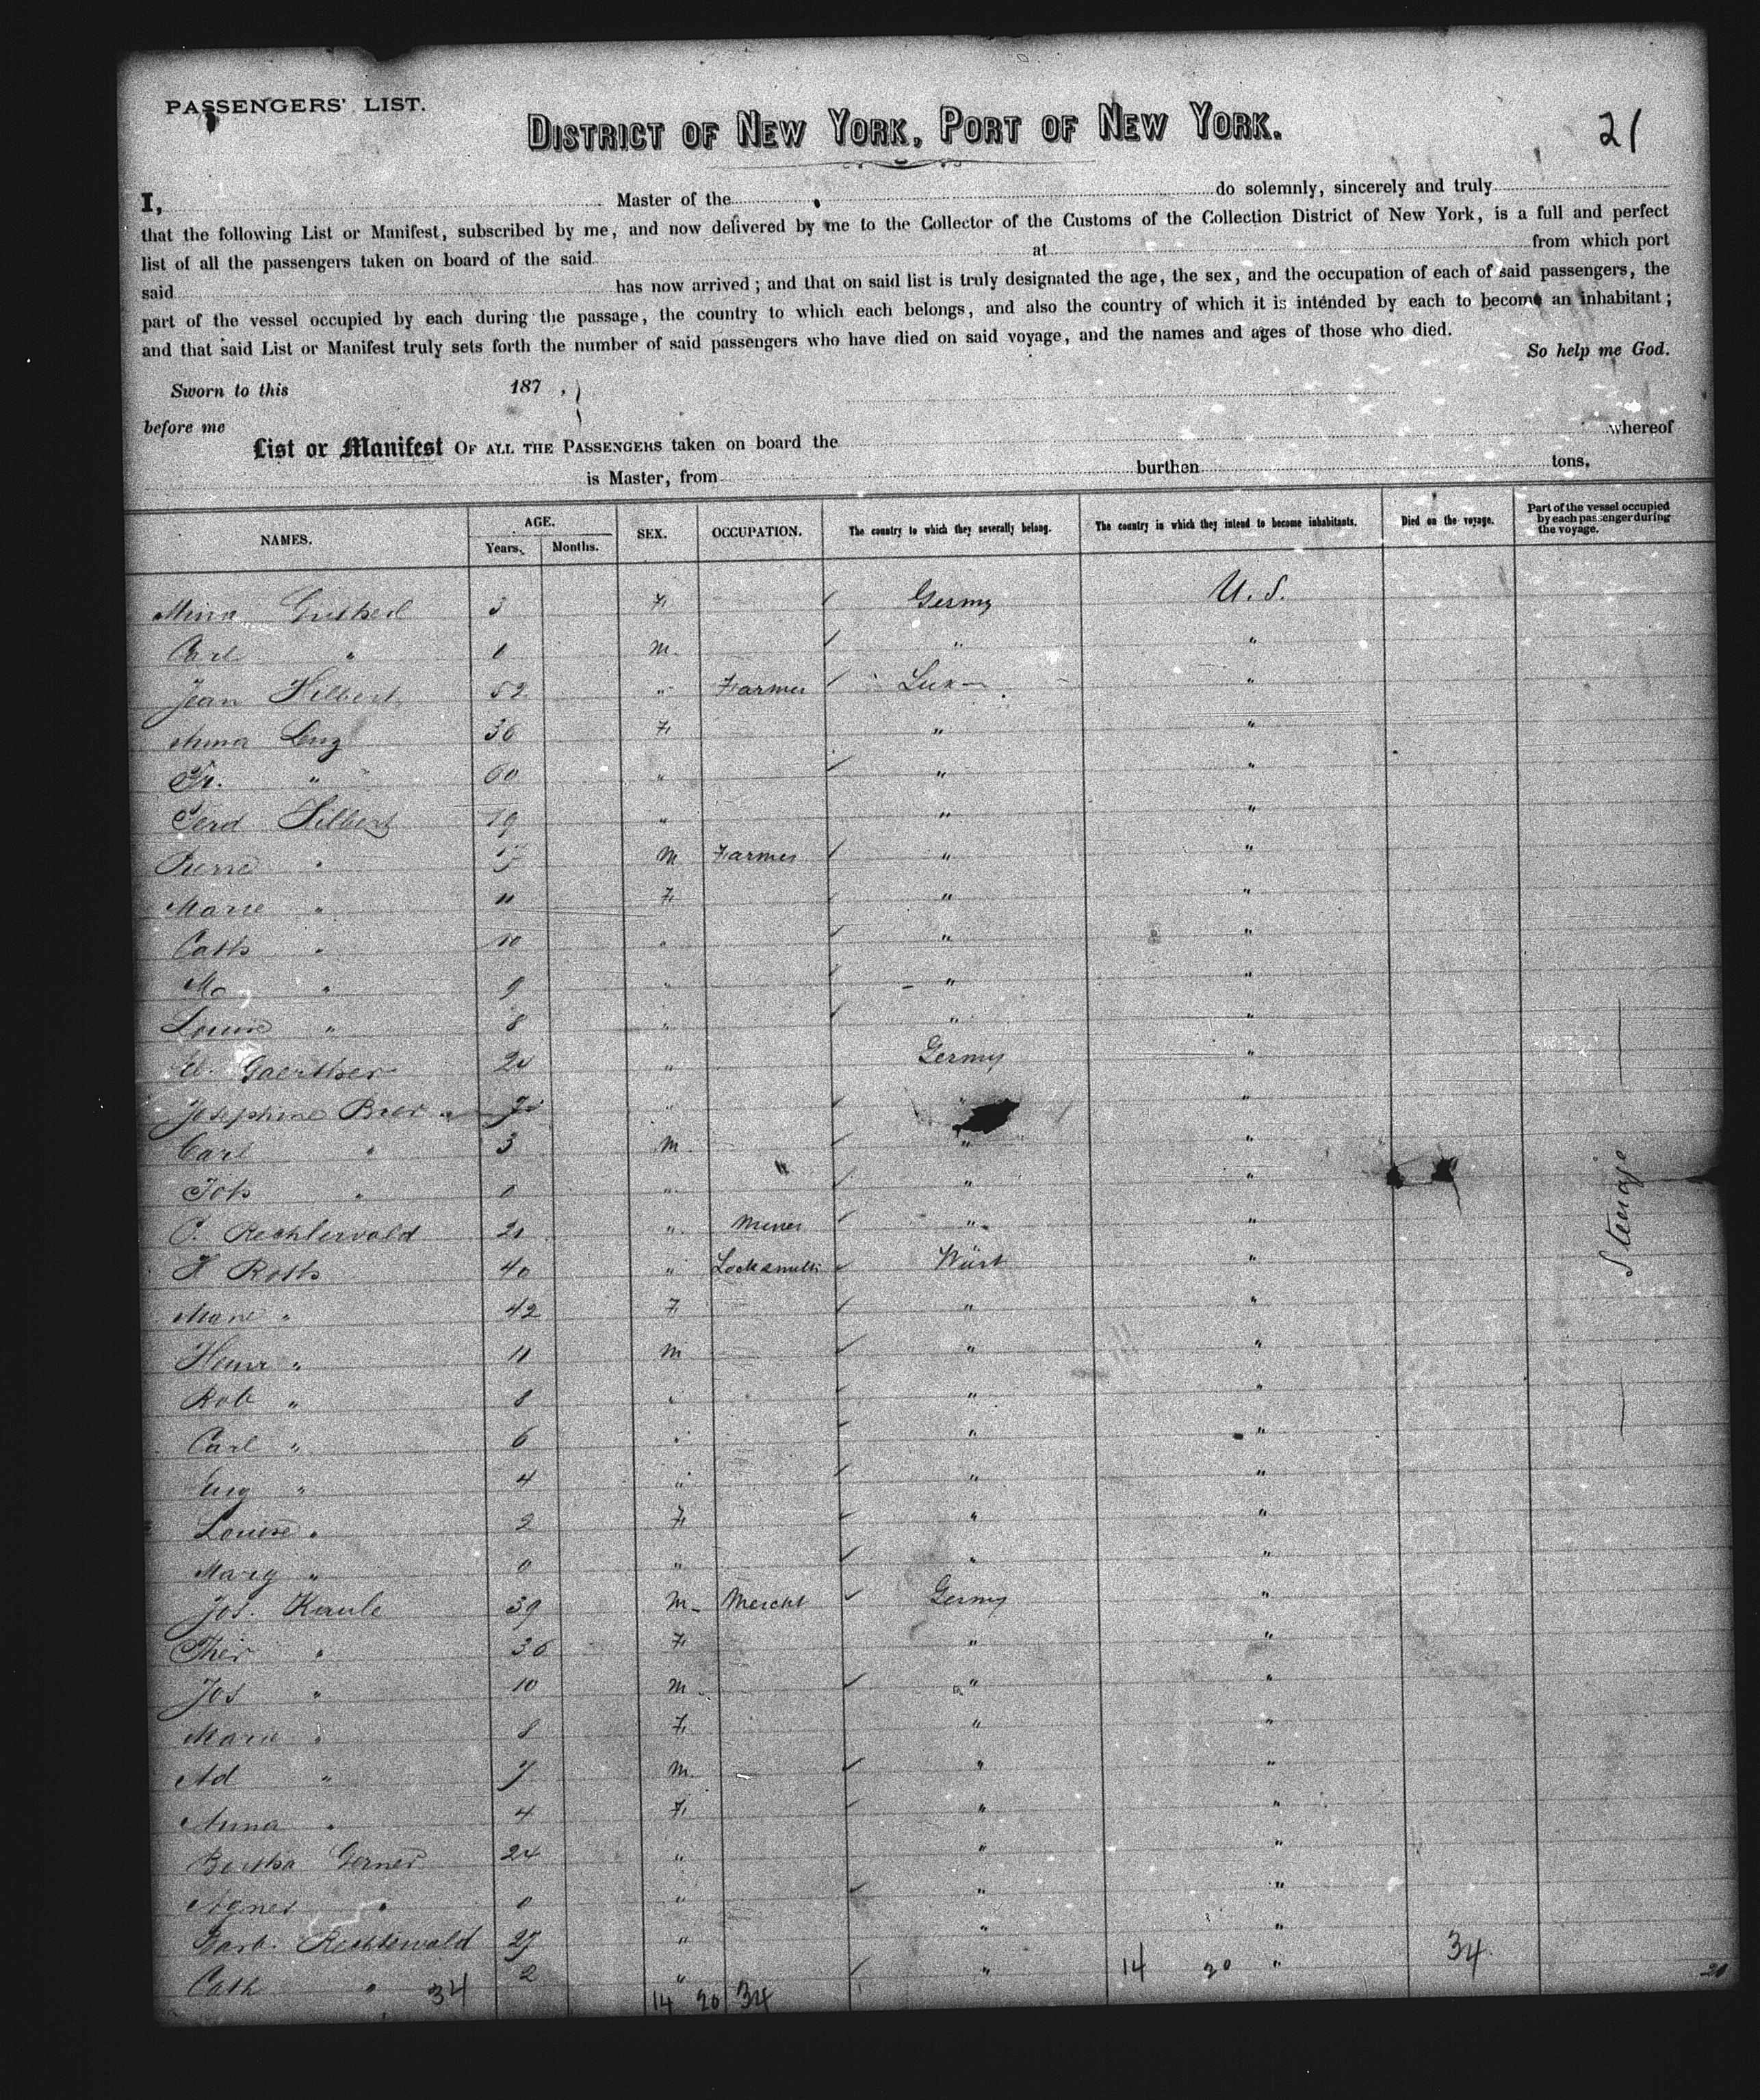 PASSENGERS' LIST.
DISTRICT OF NEW YORK, PORT OF NEW YORK.
21
I, Master of the do solemnly, sincerely and truly
that the following List or Manifest, subscribed by me, and now delivered by me to the Collector of the Customs of the Collection District of New York, is a full and perfect
list of all the passengers taken on board of the said at from which port
said has now arrived; and that on said list is truly designated the age, the sex, and the occupation of each of said passengers, the
part of the vessel occupied by each during the passage, the country to which each belongs, and also the country of which it is intended by each to become an inhabitant;
and that said List or Manifest truly sets forth the number of said passengers who have died on said voyage, and the names and ages of those who died.
So help me God.
Sworn to this 187 ,
before me
List or Manifest OF ALL THE PASSENGERS taken on board the whereof
is Master, from burthen tons.
NAMES. AGE. Years. Months. SEX. OCCUPATION. The country to which they severally belong. The country in which they intend to become inhabitants. Died on the voyage. Part of the vessel occupied by each passenger during the voyage.
3 F. Germy U.S.
Carl " M. " "
Jean 52 " Farmer Lux "
Anna 36 F. " "
Fr. " 60 " " "
Ferd 19 " " "
Pierre " 17 M Farmer " "
Marie " 11 F. " "
Cath " 10 " " "
" 9 " " "
Louise " 8 " " "
Gaerther " Germy "
Josephine " " "
Carl " 3 M. " "
Joh " " " "
21 " Miner " "
H Roth 40 " Locksmith Würt "
Marie " 42 F. " "
Heinr " 11 M " "
Rob " 8 " " "
Carl " 6 " " "
Eug " 4 " " "
Louise " 2 F. " "
Marg " 0 " " "
Jos. Kaule 39 M. Mercht Germy "
Ther " 36 F. " "
Jos " 10 M " "
Marie " 8 F. " "
Ad " 7 M. " "
Anna " 4 F. " "
Bertha Gerner 24 " " "
Agnes " 0 " " "
Barb. 27 " " "
Cath " 2 " " "
Steerage
34 14 20 34 14 20 34
20